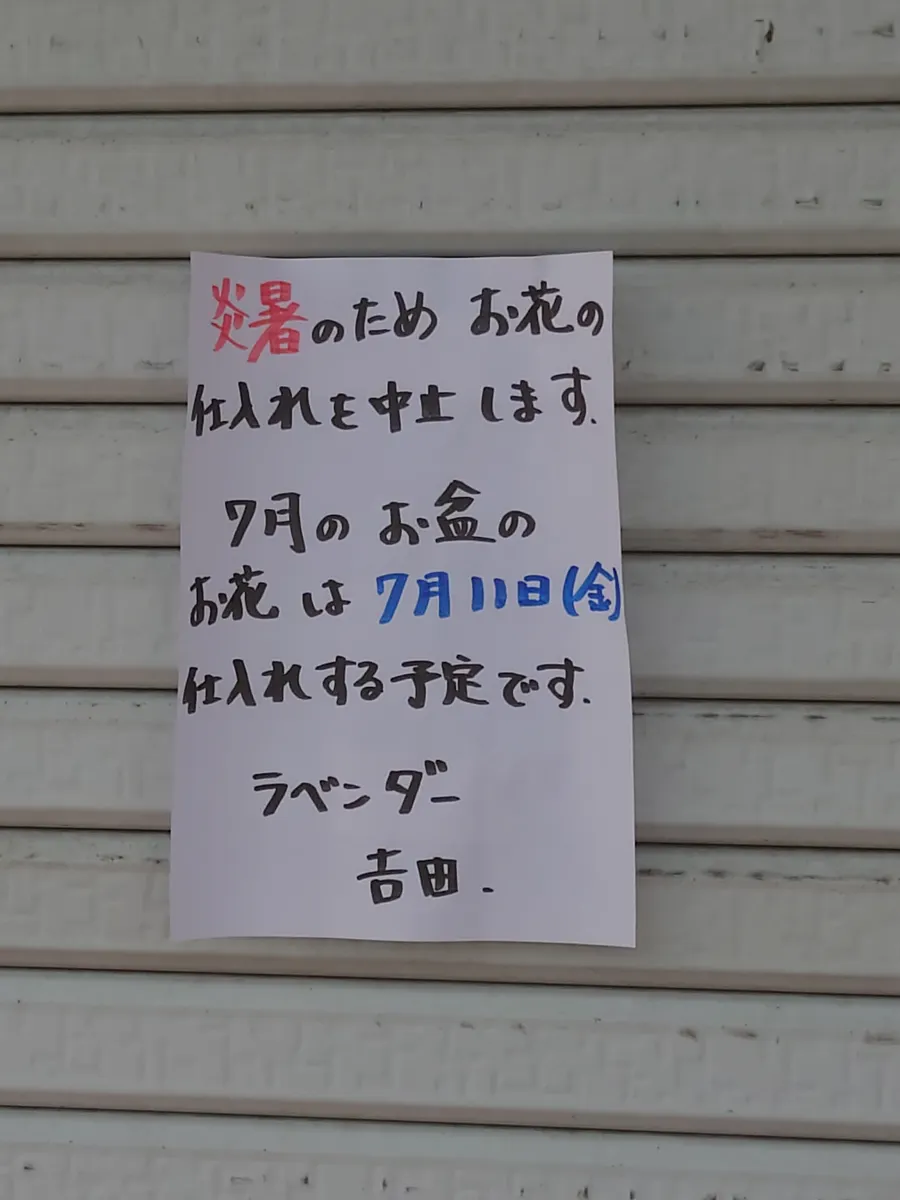 炎暑のため お花の
仕入れを中止します.
7月の お盆の
お花 は 7月11日(金)
仕入れする予定です.
ラベンダー
吉田.